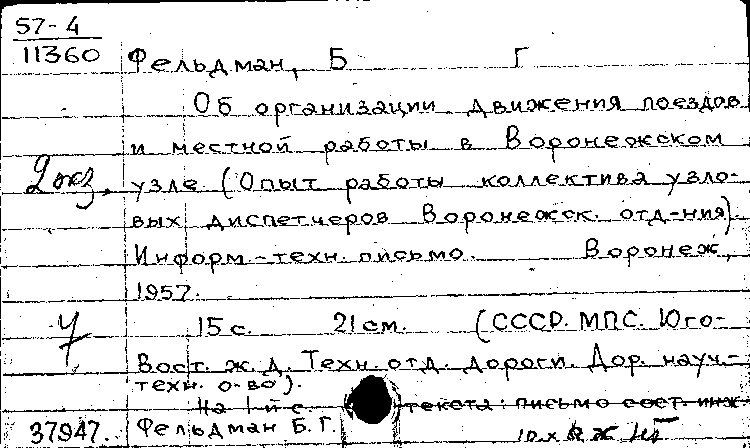 57-4
11360
Фельдман, Б Г
Об организации движения поездов
и местной работы в Воронежском
2 экз. узле (Опыт работы коллектива узло-
вых диспетчеров Воронежск. отд-ния).
Информ-техн. письмо. Воронеж,
1957.
15 с. 21 см. (СССР. МПС. Юго-
Вост. ж. д. Техн. отд. дороги. Дор. науч.-
техн. о-во).
На 1-й с. текста: письмо сост. инж.
37947. Фельдман Б. Г.